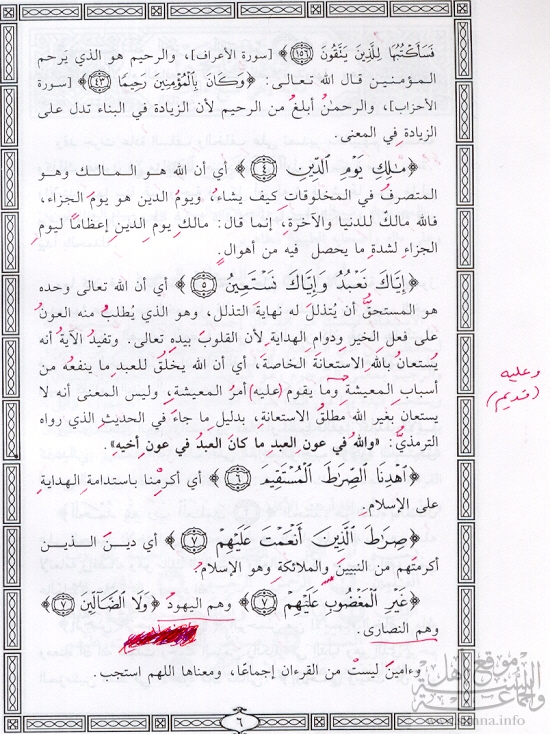 فَسَأَكْتُبُهَا لِلَّذِينَ يَتَّقُونَ ﴿١٥٦﴾﴾ [سورة الأعراف]، والرحيم هو الذي يَرحم
المـؤمنـين قـال الله تعـالـى: ﴿وَكَانَ بِالْمُؤْمِنِينَ رَحِيمًا ﴿٤٣﴾﴾ [سورة
الأحزاب]، والرحمنُ أبلغُ من الرحيم لأن الزيادة في البناء تدل على
الزيادة في المعنى.
﴿مَٰلِكِ يَوْمِ الدِّينِ ﴿٤﴾﴾ أي أن الله هو المـالـك وهـو
المتصرفُ في المخلوقاتِ كيف يشاءُ، ويومُ الدين هو يومُ الجزاء،
فالله مالكٌ للدنيا والآخرةِ، إنما قال: مالكِ يومِ الدين إعظامًا ليومِ
الجزاءِ لشدةِ ما يحصل فيه من أهوالٍ.
﴿إِيَّاكَ نَعْبُدُ وَإِيَّاكَ نَسْتَعِينُ ﴿٥﴾﴾ أي أن الله تعالى وحده
هو المستحقُّ أن يُتذللَ له نهايةَ التذلل، وهو الذي يُطلبُ منه العونُ
على فعلِ الخيرِ ودوامِ الهدايةِ لأن القلوبَ بيدِه تعالى. وتفيدُ الآيةُ أنه
يُستعانُ باللهِ الاستعانةَ الخاصةَ، أي أن الله يخلُقُ للعبدِ ما ينفعُه من
أسبابِ المعيشةِ وما يقوم (عليه) أمرُ المعيشةِ، وليس المعنى أنه لا
يستعان بغير الله مطلقَ الاستعانةِ، بدليلِ ما جاءَ في الحديثِ الذي رواه
الترمذيُّ: «واللهُ في عون العبد ما كانَ العبدُ في عون أخيه»
﴿اهْدِنَا الصِّرَاطَ الْمُسْتَقِيمَ ﴿٦﴾﴾ أي أكرمْنا باستدامةِ الهداية
على الإسلامِ.
﴿صِرَاطَ الَّذِينَ أَنْعَمْتَ عَلَيْهِمْ ﴿٧﴾﴾ أي ديـنَ الـذيـن
أكرمتَهم من النبيينَ والملائكةِ وهو الإسلامُ.
﴿غَيْرِ الْمَغْضُوبِ عَلَيْهِمْ ﴿٧﴾﴾ وهم اليهودُ ﴿وَلَا الضَّالِّينَ ﴿٧﴾﴾
وهم النصارى.
وءامينَ ليستْ من القرءانِ إجماعًا، ومعناها اللهم استجب.
٦
وعليه
(قديم)
موقع أهل السنة والجماعة
sunna.info